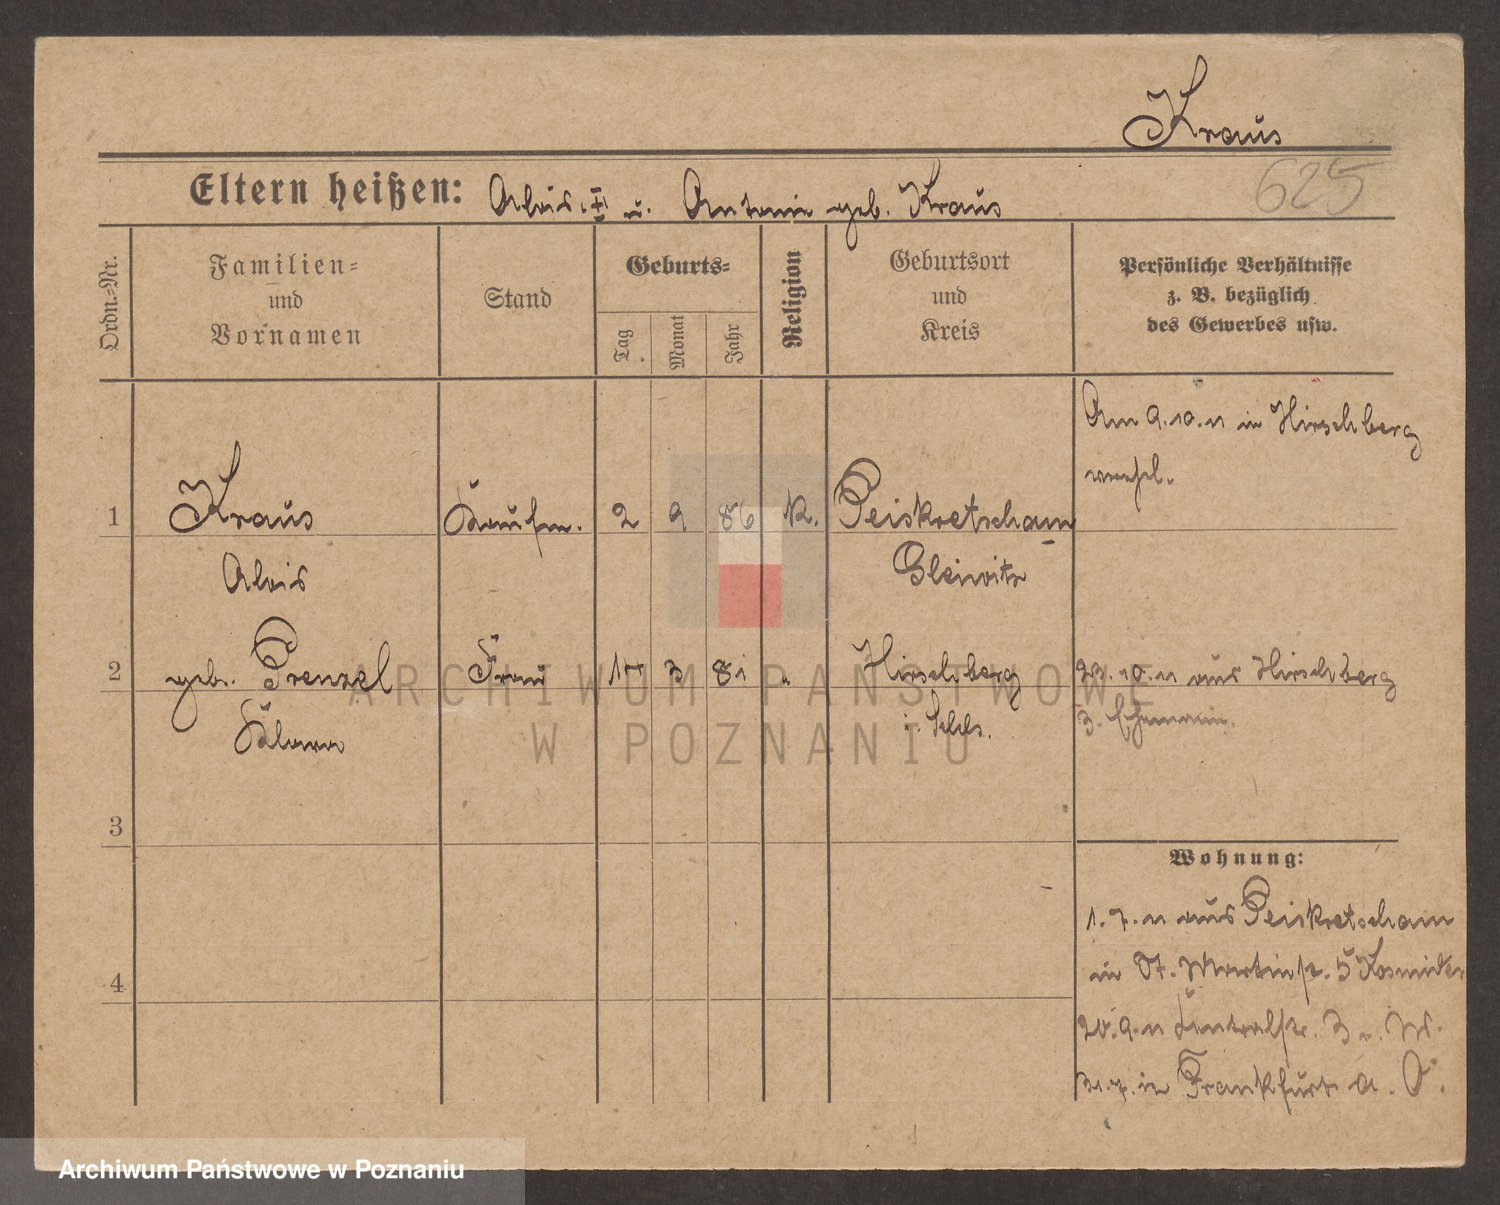 Kraus
625
Eltern heißen: Alois. II u. Antonie geb. Kraus
Ordn.-Nr.
Familien-
und
Vornamen
Stand
Geburts-
Tag
Monat
Jahr
Religion
Geburtsort
und
Kreis
Persönliche Verhältnisse
z. B. bezüglich
des Gewerbes usw.
Am 9.10.11 in Hirschberg
verehel.
1 Kraus Kaufm. 2 9 86 K. Peiskretscham
Alois Gleiwitz
2 geb. Prenzel Frau 17 3 81 " Hirschberg 23.10.11 aus Hirschberg
Klara i. Schls. z. Ehemann.
3
Wohnung:
1.7.11 aus Peiskretscham
in St. Martinstr. 5
4
20.9.11 Zentralstr. 3
31.7. in Frankfurt a. O.
ARCHIWUM PAŃSTWOWE
W POZNANIU
Archiwum Państwowe w Poznaniu